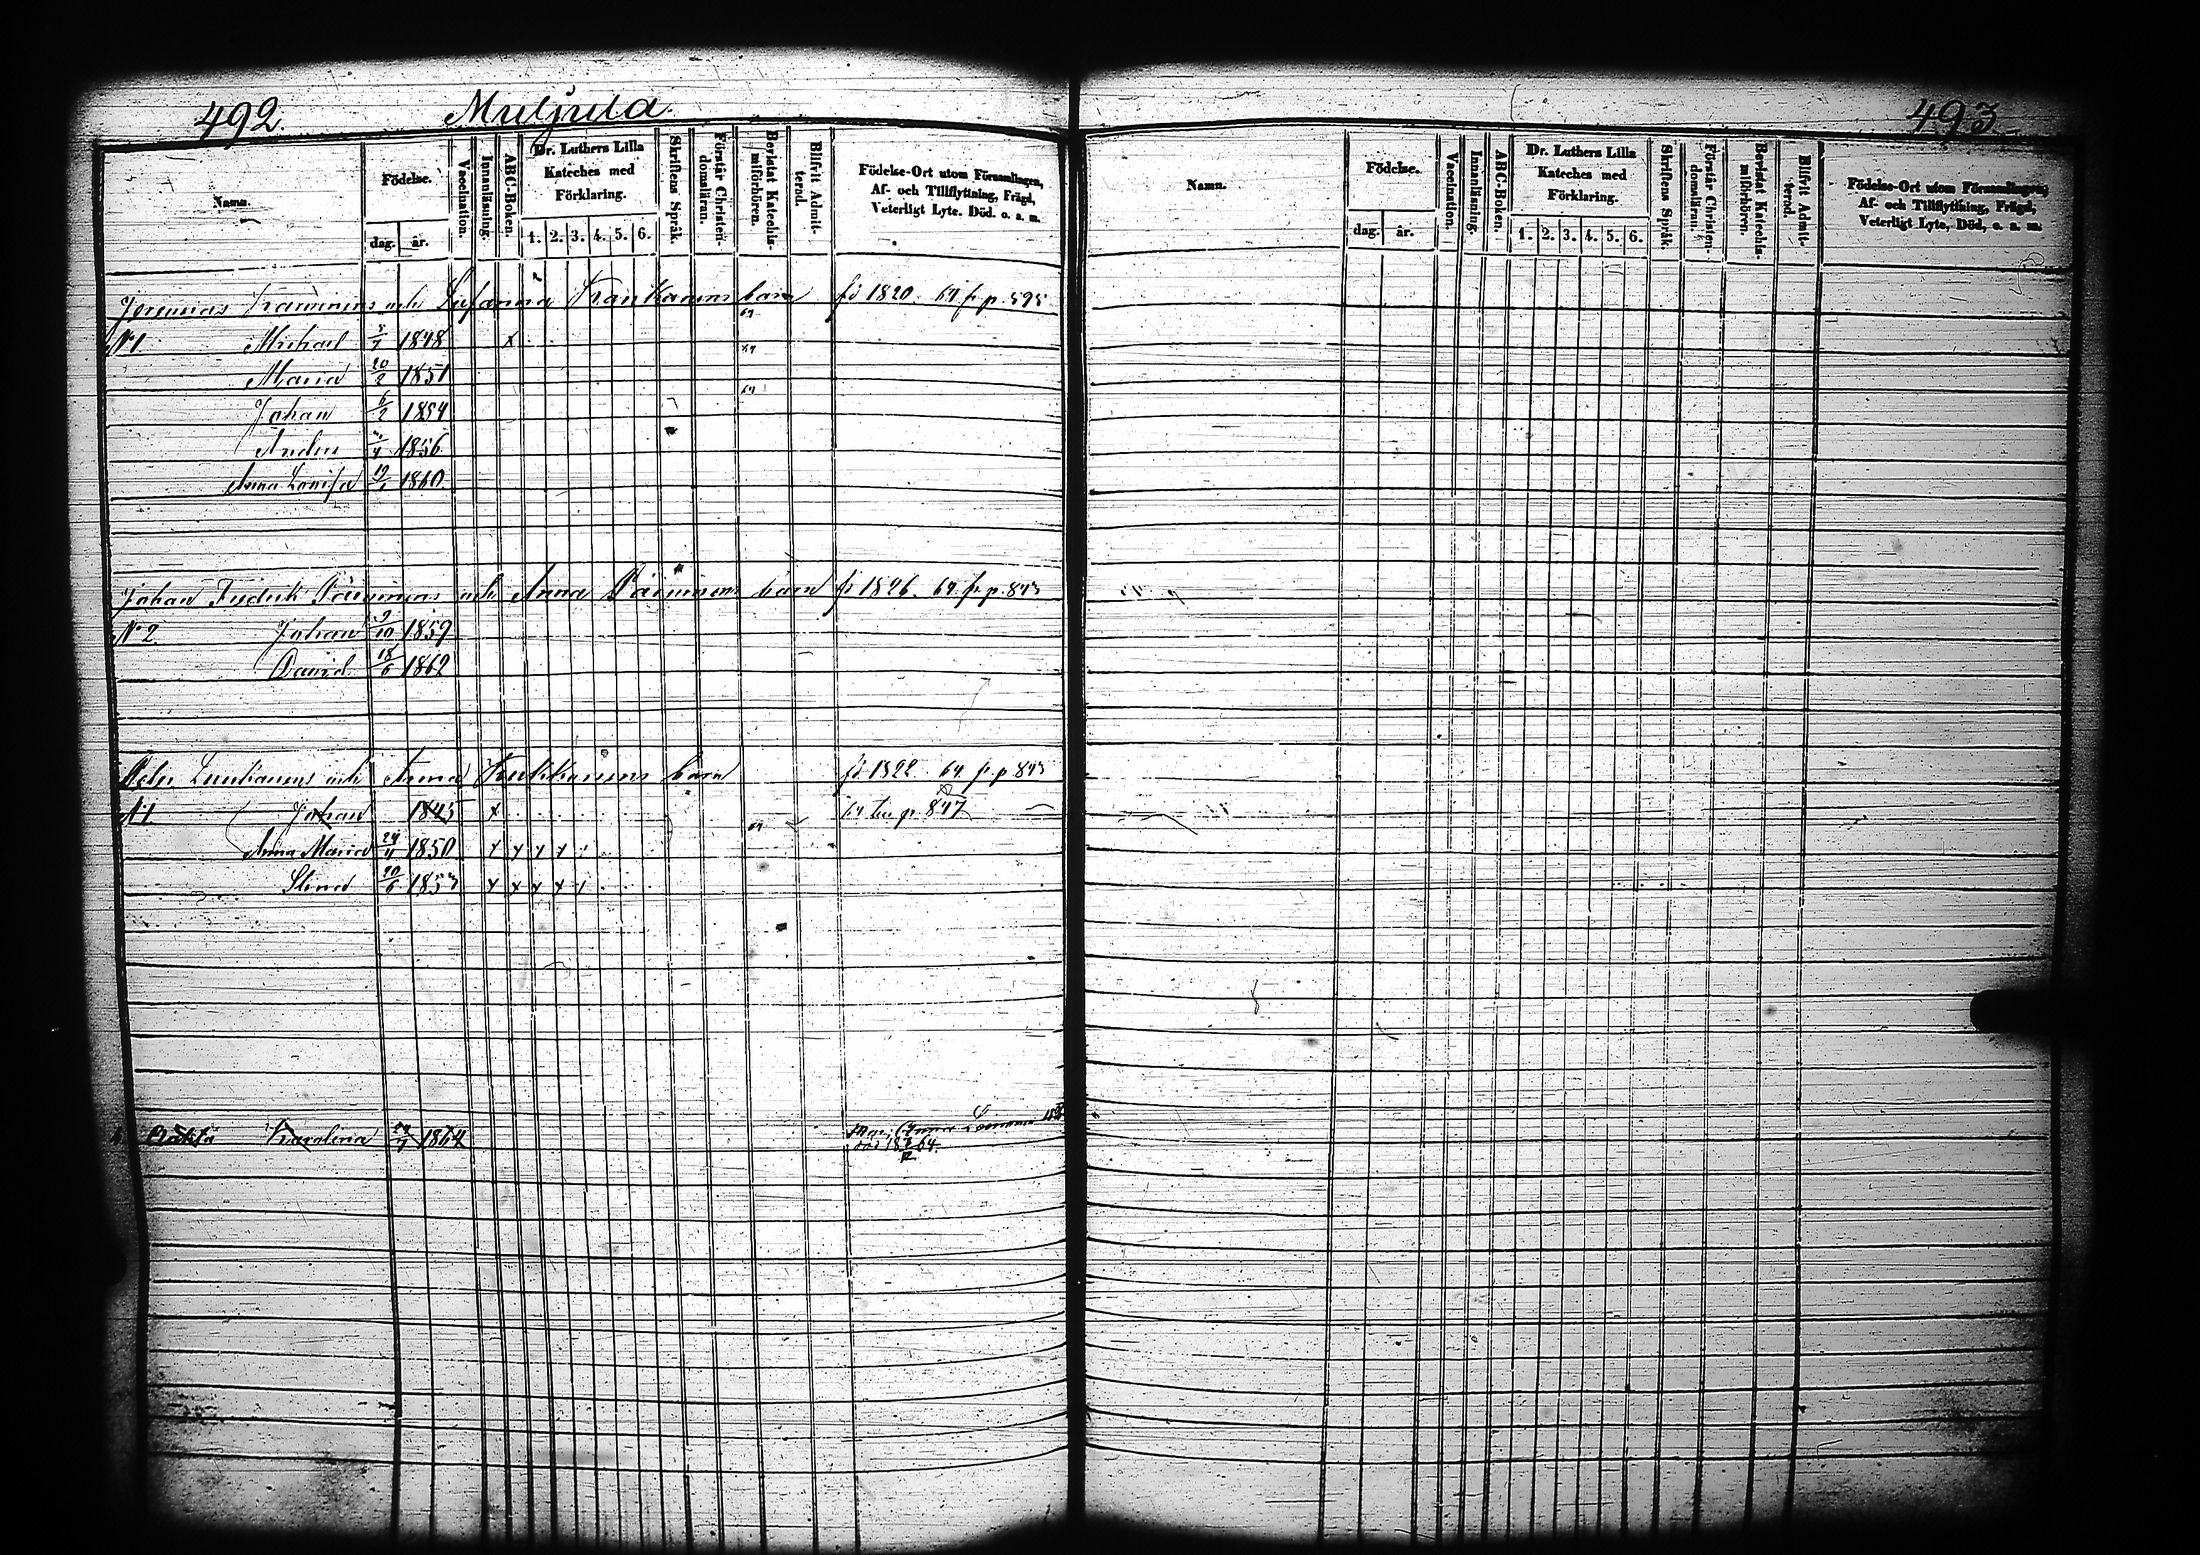 492. Muljula
Namn.
Födelse.
dag. år.
Vaccination.
Innanläsning.
ABC-Boken.
Dr. Luthers Lilla
Kateches med
Förklaring.
1. 2. 3. 4. 5. 6.
Skriftens Språk.
Förstår Christen-
domsläran.
Bevistat Katechis-
miförhören.
Blifvit Admit-
terad.
Födelse-Ort utom Församlingen,
Af- och Tillflyttning, Frägd,
Veterligt Lyte. Död. o. s. m.
Jeremias och barn fö 1820. 64 fr p. 595
N:1 Michael 1848 x
Maria 20/2 1851
Johan 6/2 1854
Anders 1856
Anna Lovisa 1860
Johan Fredrik och Anna barn fö 1826. 64 fr p. 843
N:2 Johan 9/10 1859
David 18/6 1862
Peter och Anna barn fö 1822 64 fr p 843
Johan 1845 x 64 p. 847
Anna Maria 1850 x x x x
Stina 20/6 1853 x x x x
Karolina 1864
493
Namn.
Födelse.
dag. år.
Vaccination.
Innanläsning.
ABC-Boken.
Dr. Luthers Lilla
Kateches med
Förklaring.
1. 2. 3. 4. 5. 6.
Skriftens Språk.
Förstår Christen-
domsläran.
Bevistat Katechis-
miförhören.
Blifvit Admit-
terad.
Födelse-Ort utom Församlingen,
Af- och Tillflyttning, Frägd,
Veterligt Lyte, Död, o. s. m.